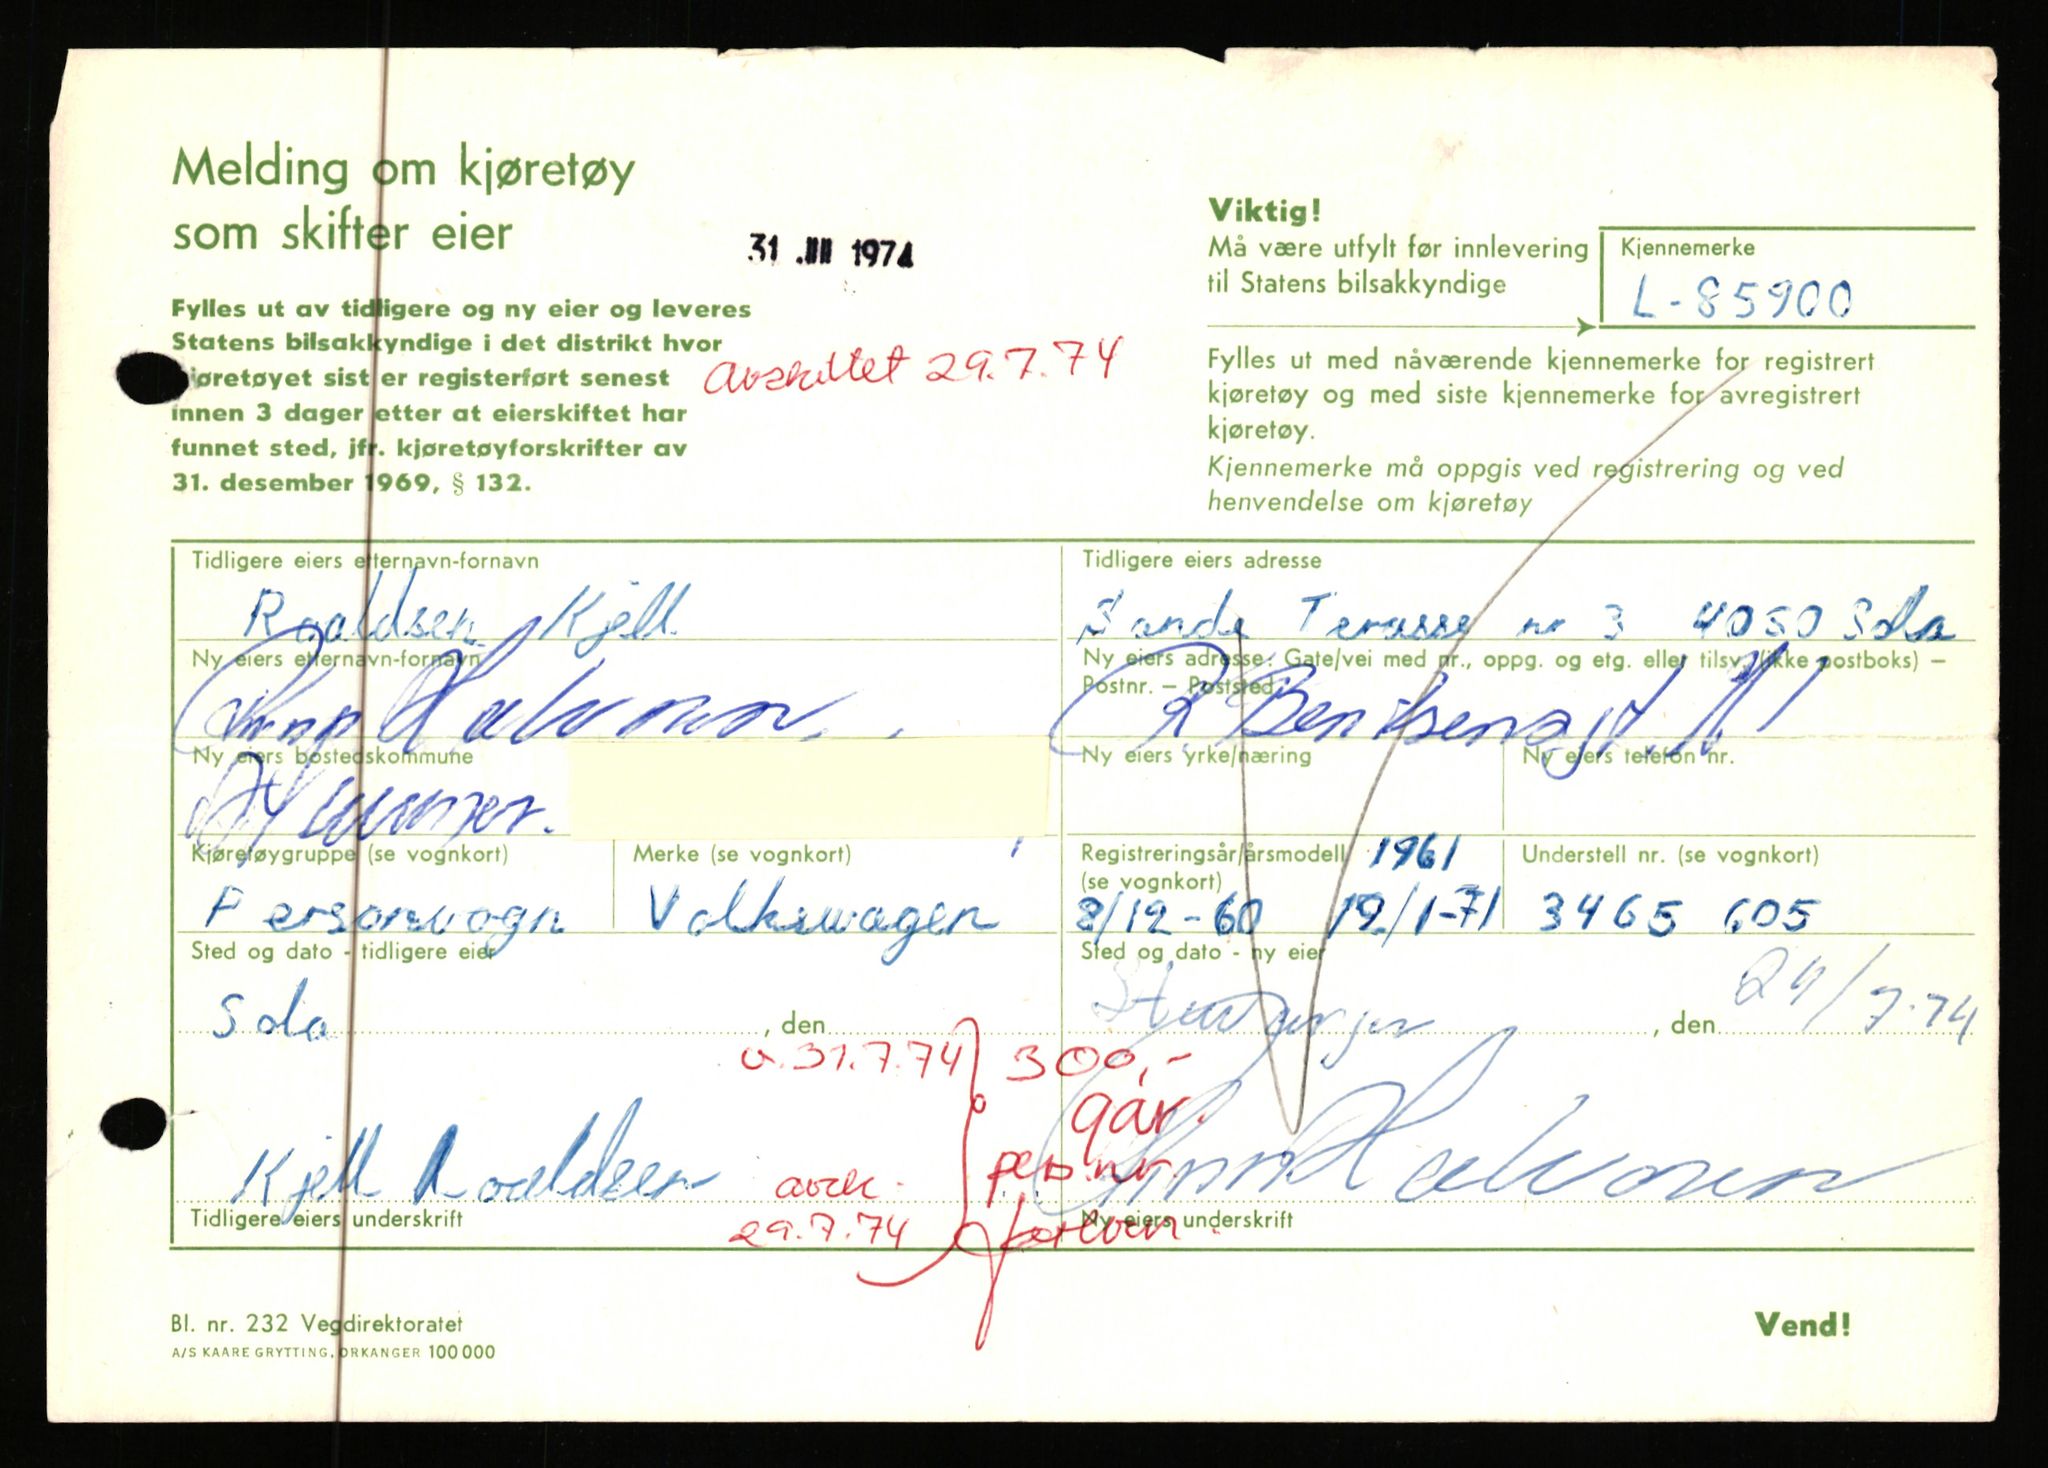 Melding om kjøretøy
som skifter eier
31 JUL 1974
Fylles ut av tidligere og ny eier og leveres
Statens bilsakkyndige i det distrikt hvor
kjøretøyet sist er registerført senest
innen 3 dager etter at eierskiftet har
funnet sted, jfr. kjøretøyforskrifter av
31. desember 1969, § 132.
avskiltet 29.7.74
Viktig!
Må være utfylt før innlevering
til Statens bilsakkyndige
Kjennemerke
L-85900
Fylles ut med nåværende kjennemerke for registrert
kjøretøy og med siste kjennemerke for avregistrert
kjøretøy.
Kjennemerke må oppgis ved registrering og ved
henvendelse om kjøretøy
Tidligere eiers etternavn-fornavn
Roaldsen Kjell
Tidligere eiers adresse
Sande Terasse nr 3 4050 Sola
Ny eiers etternavn-fornavn
Halvorsen
Ny eiers adresse: Gate/vei med nr., oppg. og etg. eller tilsv. (ikke postboks) –
Postnr. – Poststed
R Bentsensgt.
Ny eiers bostedskommune
Ny eiers yrke/næring
Ny eiers telefon nr.
Kjøretøygruppe (se vognkort)
Personvogn
Merke (se vognkort)
Volkswagen
Registreringsår/årsmodell 1961
(se vognkort)
8/12-60 19/1-71
Understell nr. (se vognkort)
3465 605
Sted og dato - tidligere eier
Sola , den
Sted og dato - ny eier
Stavanger , den 29/7-74
31.7.74 300,-
gar.
pers.nr
Kjell Roaldsen
Halvorsen
Tidligere eiers underskrift
29.7.74
Ny eiers underskrift
Bl. nr. 232 Vegdirektoratet
A/S KAARE GRYTTING, ORKANGER 100 000
Vend!